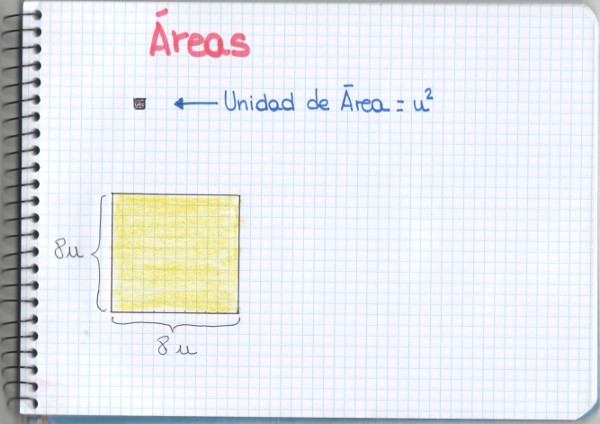 Áreas
← Unidad de Área = u²
8u
8u